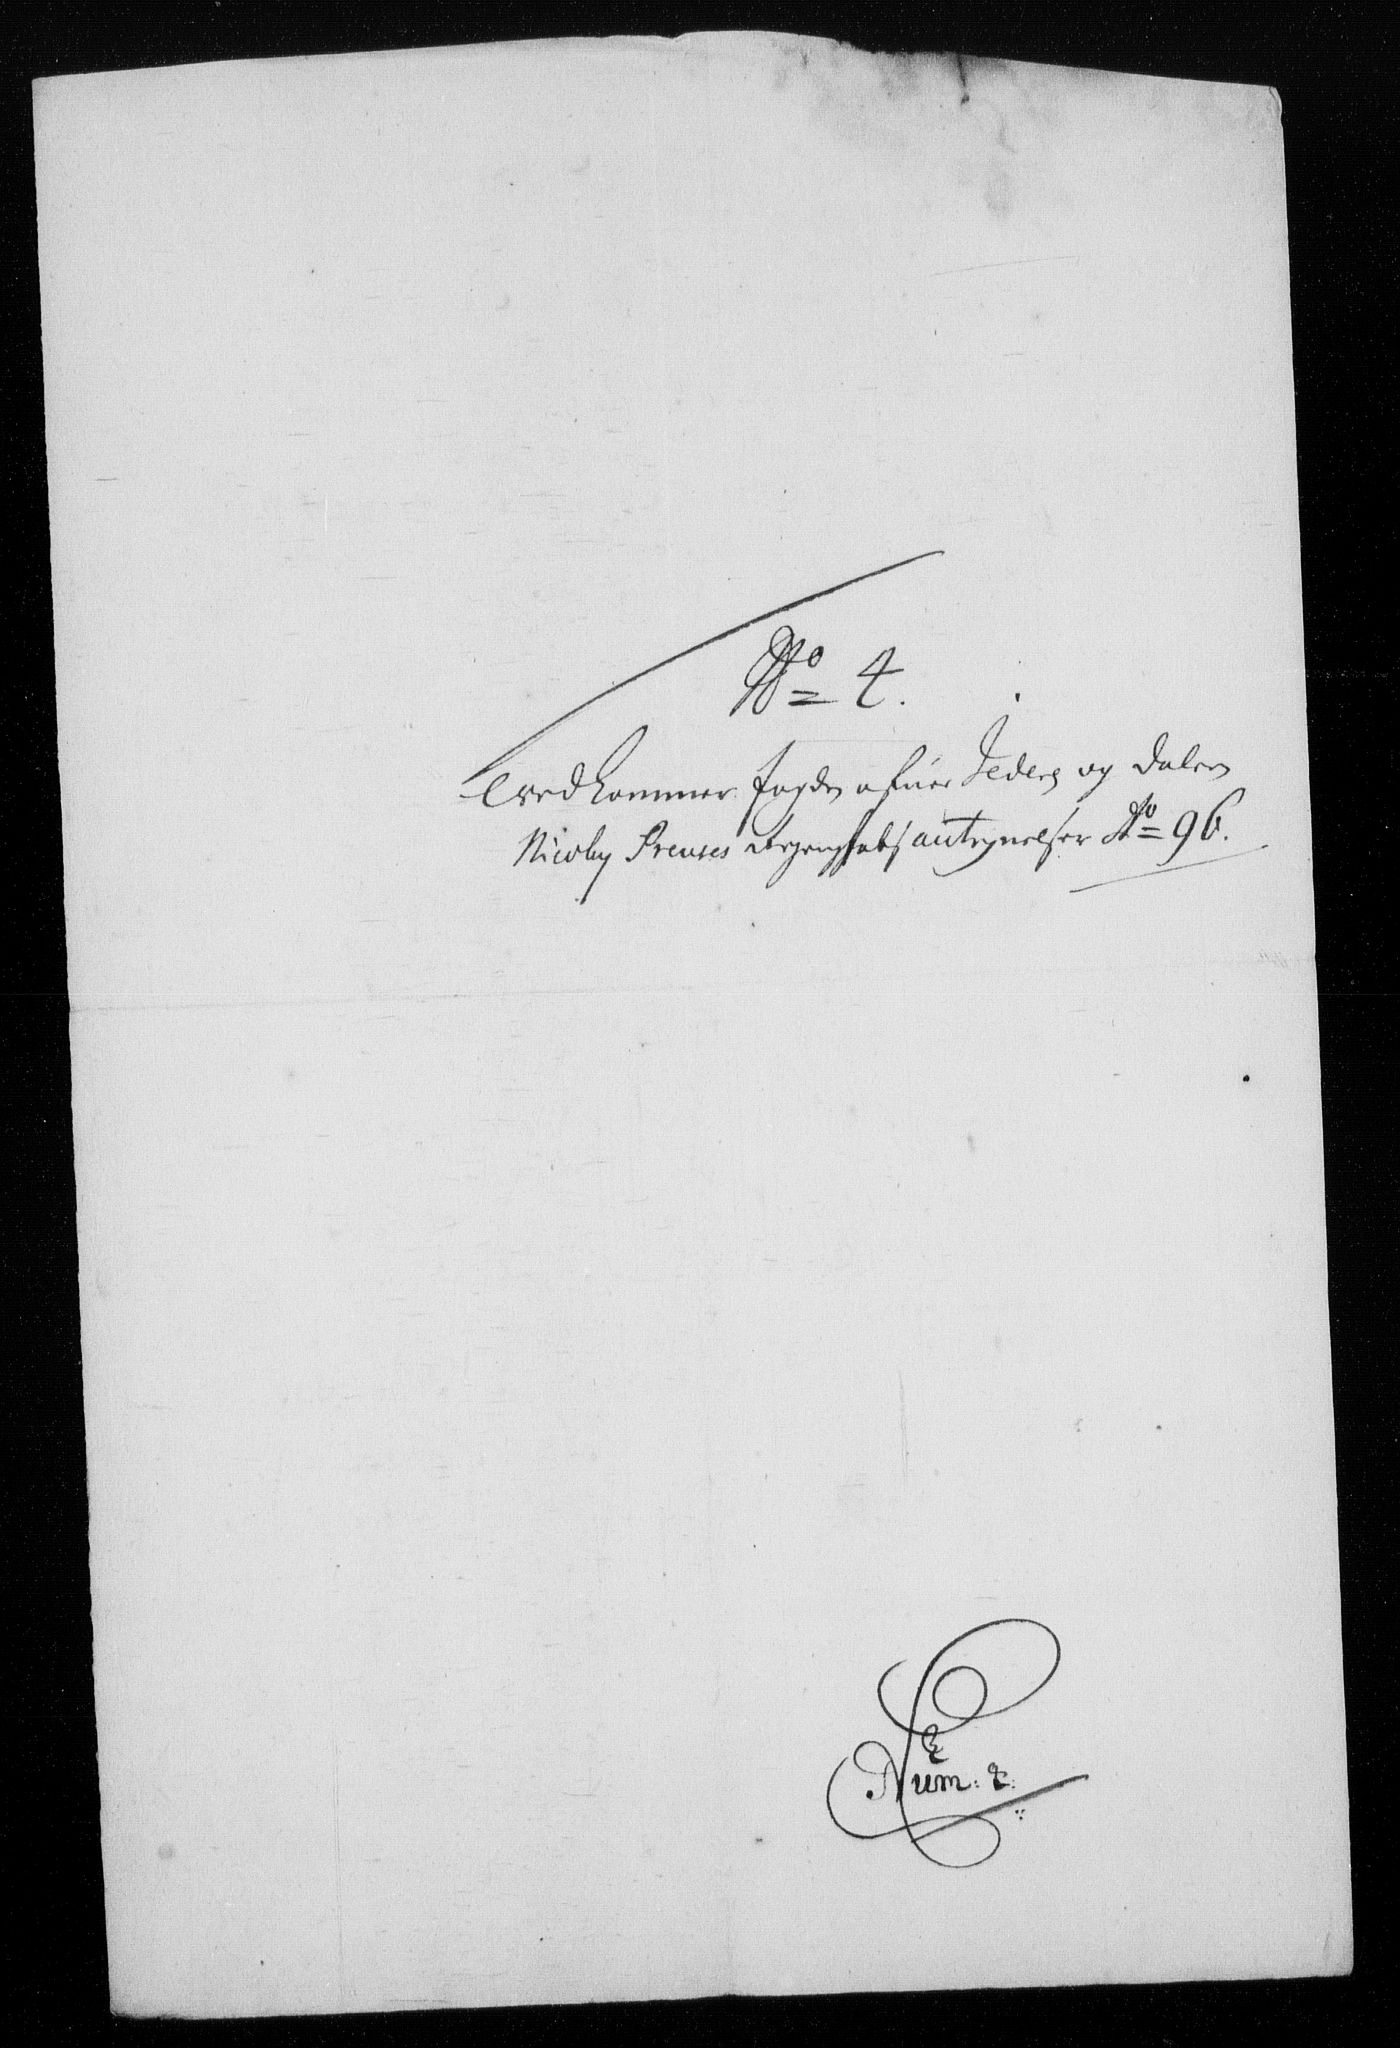 No= 4.
Vedkommer fogden ofuer Jederen og Dalerne
Nicolaj Preuses Regenskabs antegnelser Ao= 96.
Num: 2: